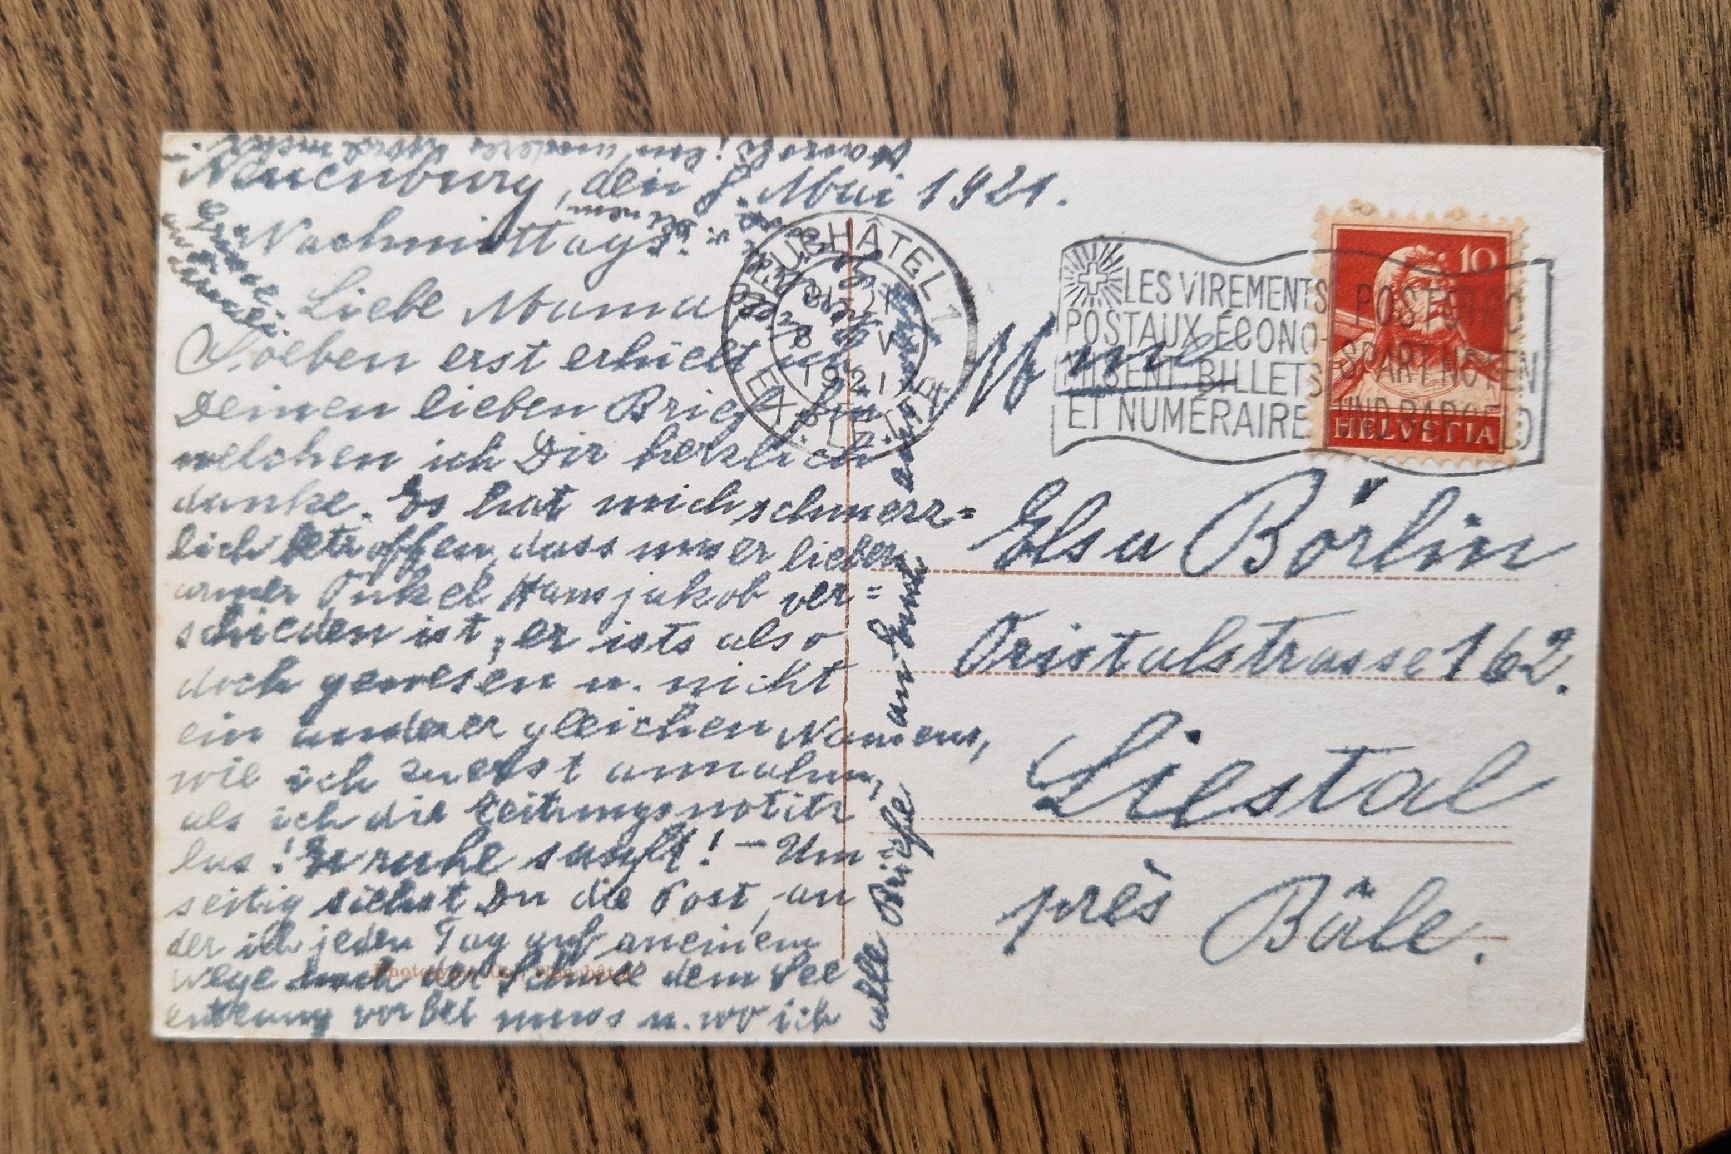 Neuenburg, den 8. Mai 1921.
Nachmittags.
Liebe Mama
Soeben erst erhielt ich
Deinen lieben Brief für
welchen ich Dir herzlich
danke. Es hat mich schmerz=
lich betroffen, dass unser lieber
armer Onkel Hansjakob ver=
schieden ist, er ists also
doch gewesen u. nicht
ein anderer gleichen Namens,
wie ich zuerst annahm,
als ich die Zeitungsnotitz
las! Er ruhe sanft! – Um
seitig siehst Du die Post, an
der ich jeden Tag auf meinem
Wege nach der Schule dem See
entlang vorbei muss u. wo ich
alle Briefe
NEUCHÂTEL 1
8 V
1921
LES VIREMENTS
POSTAUX ÉCONO-
MISENT BILLETS
ET NUMÉRAIRE
POSTCHECK
SPART NOTEN
UND BARGELD
10
HELVETIA
Mme
Elsa Börlin
Oristalstrasse 162.
Liestal
près Bâle.